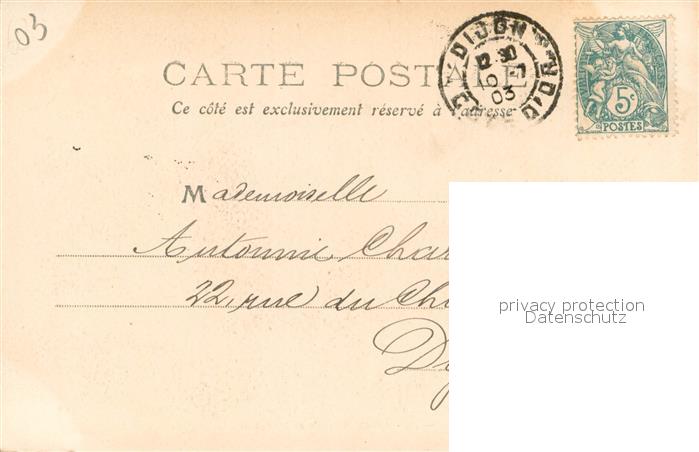 03
CARTE POSTALE
Ce côté est exclusivement réservé à l'adresse
DIJON
CÔTE-D'OR
03
5c
POSTES
Mademoiselle
Antonine Cha
22, rue du Ch
privacy protection
Datenschutz